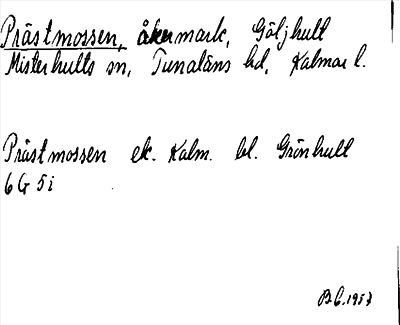 Prästmossen, åkermark, Göljhult
Misterhults sn, Tunaläns hd, Kalmar l.
Prästmossen ek. Kalm. bl. Grönhult
6 G 5 i